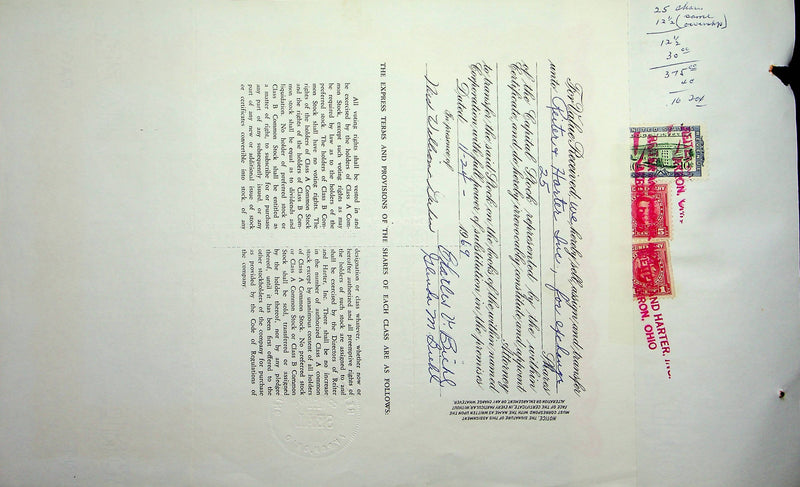 25 shares
12½ (same
ownership)
12½
30.00
375.00
40
For Value Received, we hereby sell, assign, and transfer
unto Reiter & Harter Inc., for exchange
25 Shares
of the Capital Stock represented by the within
Certificate, and do hereby irrevocably constitute and appoint
Attorney
to transfer the said Stock on the books of the within named
Corporation with full power of substitution in the premises.
Dated 1-24- 1969
In presence of
Charles W. Biehl
NOTICE. THE SIGNATURE OF THIS ASSIGNMENT
MUST CORRESPOND WITH THE NAME AS WRITTEN UPON THE
FACE OF THE CERTIFICATE, IN EVERY PARTICULAR, WITHOUT
ALTERATION OR ENLARGEMENT, OR ANY CHANGE WHATEVER.
THE EXPRESS TERMS AND PROVISIONS OF THE SHARES OF EACH CLASS ARE AS FOLLOWS:
All voting rights shall be vested in and
be exercised by the holders of Class A Com-
mon Stock except such voting rights as may
be required by law as to the holders of the
preferred stock. The holders of Class B Com-
mon Stock shall have no voting rights. The
rights of the holders of Class A Common Stock
and the rights of the holders of Class B Com-
mon stock shall be equal as to dividends and
liquidation. No holder of preferred stock or
Class B Common Stock shall be entitled as
a matter of right, to subscribe for or purchase
any part of any subsequently issued, or any
part of any new or additional issue of stock
or certificates convertible into stock, of any
designation or class whatever, whether now or
hereafter authorized and all preemptive rights of
the holders of such stock are assigned to and
shall be exercised by the Directors of Reiter
and Harter, Inc. There shall be no increase
in the number of authorized Class A common
stock except by unanimous consent of all holders
of Class A Common Stock. No preferred stock
or Class A Common Stock or Class B Common
Stock shall be sold, transferred or assigned
by the holder thereof, nor by any pledgee
thereof, until it has been first offered to the
other stockholders of the company for purchase
as provided by the Code of Regulations of
the company.
AND HARTER, INC.
AKRON, OHIO